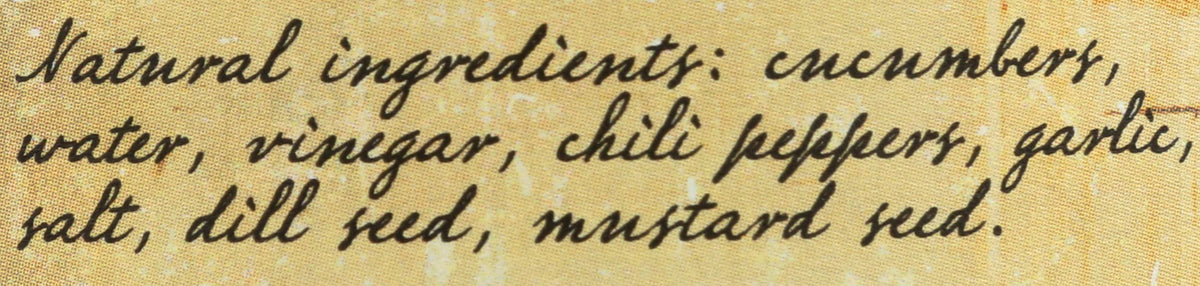 Natural ingredients: cucumbers,
water, vinegar, chili peppers, garlic,
salt, dill seed, mustard seed.